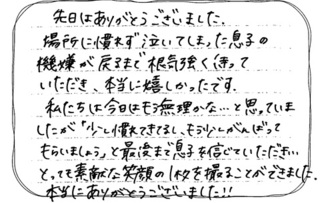 先日はありがとうございました。
場所に慣れず泣いてしまった息子の
機嫌が戻るまで根気強く待って
いただき、本当に嬉しかったです。
私たちは今日はもう無理かな…と思っていま
したが「少し慣れてきてるし、もう少しがんばって
もらいましょう」と最後まで息子を信じていただき…
とっても素敵な笑顔の1枚を撮ることができました。
本当にありがとうございました!!